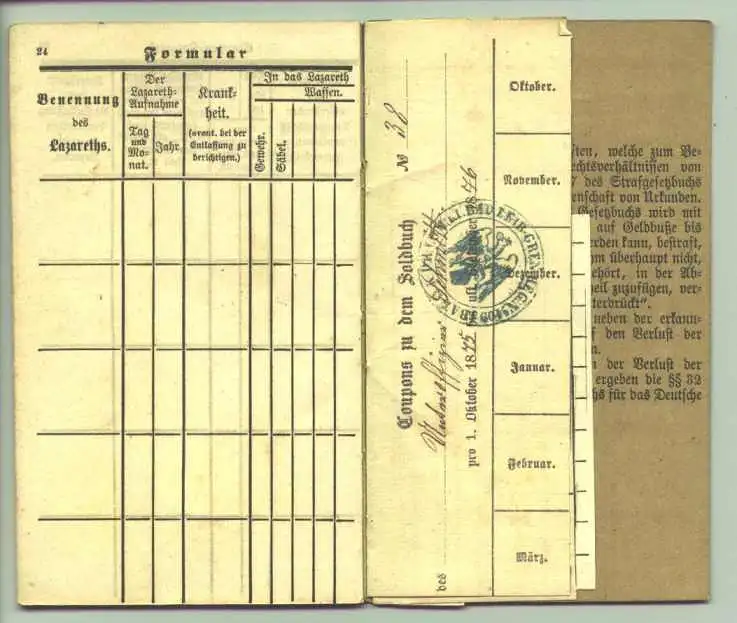 24
Formular
Benennung
des
Lazareths.
Der
Lazareth-
Aufnahme
Tag
und
Mo-
nat.
Jahr.
Krank-
heit.
(event. bei der
Entlassung zu
berichtigen.)
In das Lazareth
Waffen.
Gewehr.
Säbel.
Coupons zu dem Soldbuch № 38
des Unteroffizier
pro 1. Oktober 1875 bis ult. September 1876
Oktober.
November.
Dezember.
Januar.
Februar.
März.
sten, welche zum Be-
echtsverhältnissen von
7 des Strafgesetzbuchs
enschaft von Urkunden.
Gesetzbuchs wird mit
auf Geldbuße bis
erden kann, bestraft,
hm überhaupt nicht,
ehört, in der Ab-
heil zuzufügen, ver-
terdrückt".
neben der erkann-
f den Verlust der
n.
der Verlust der
ergeben die §§ 32
hs für das Deutsche